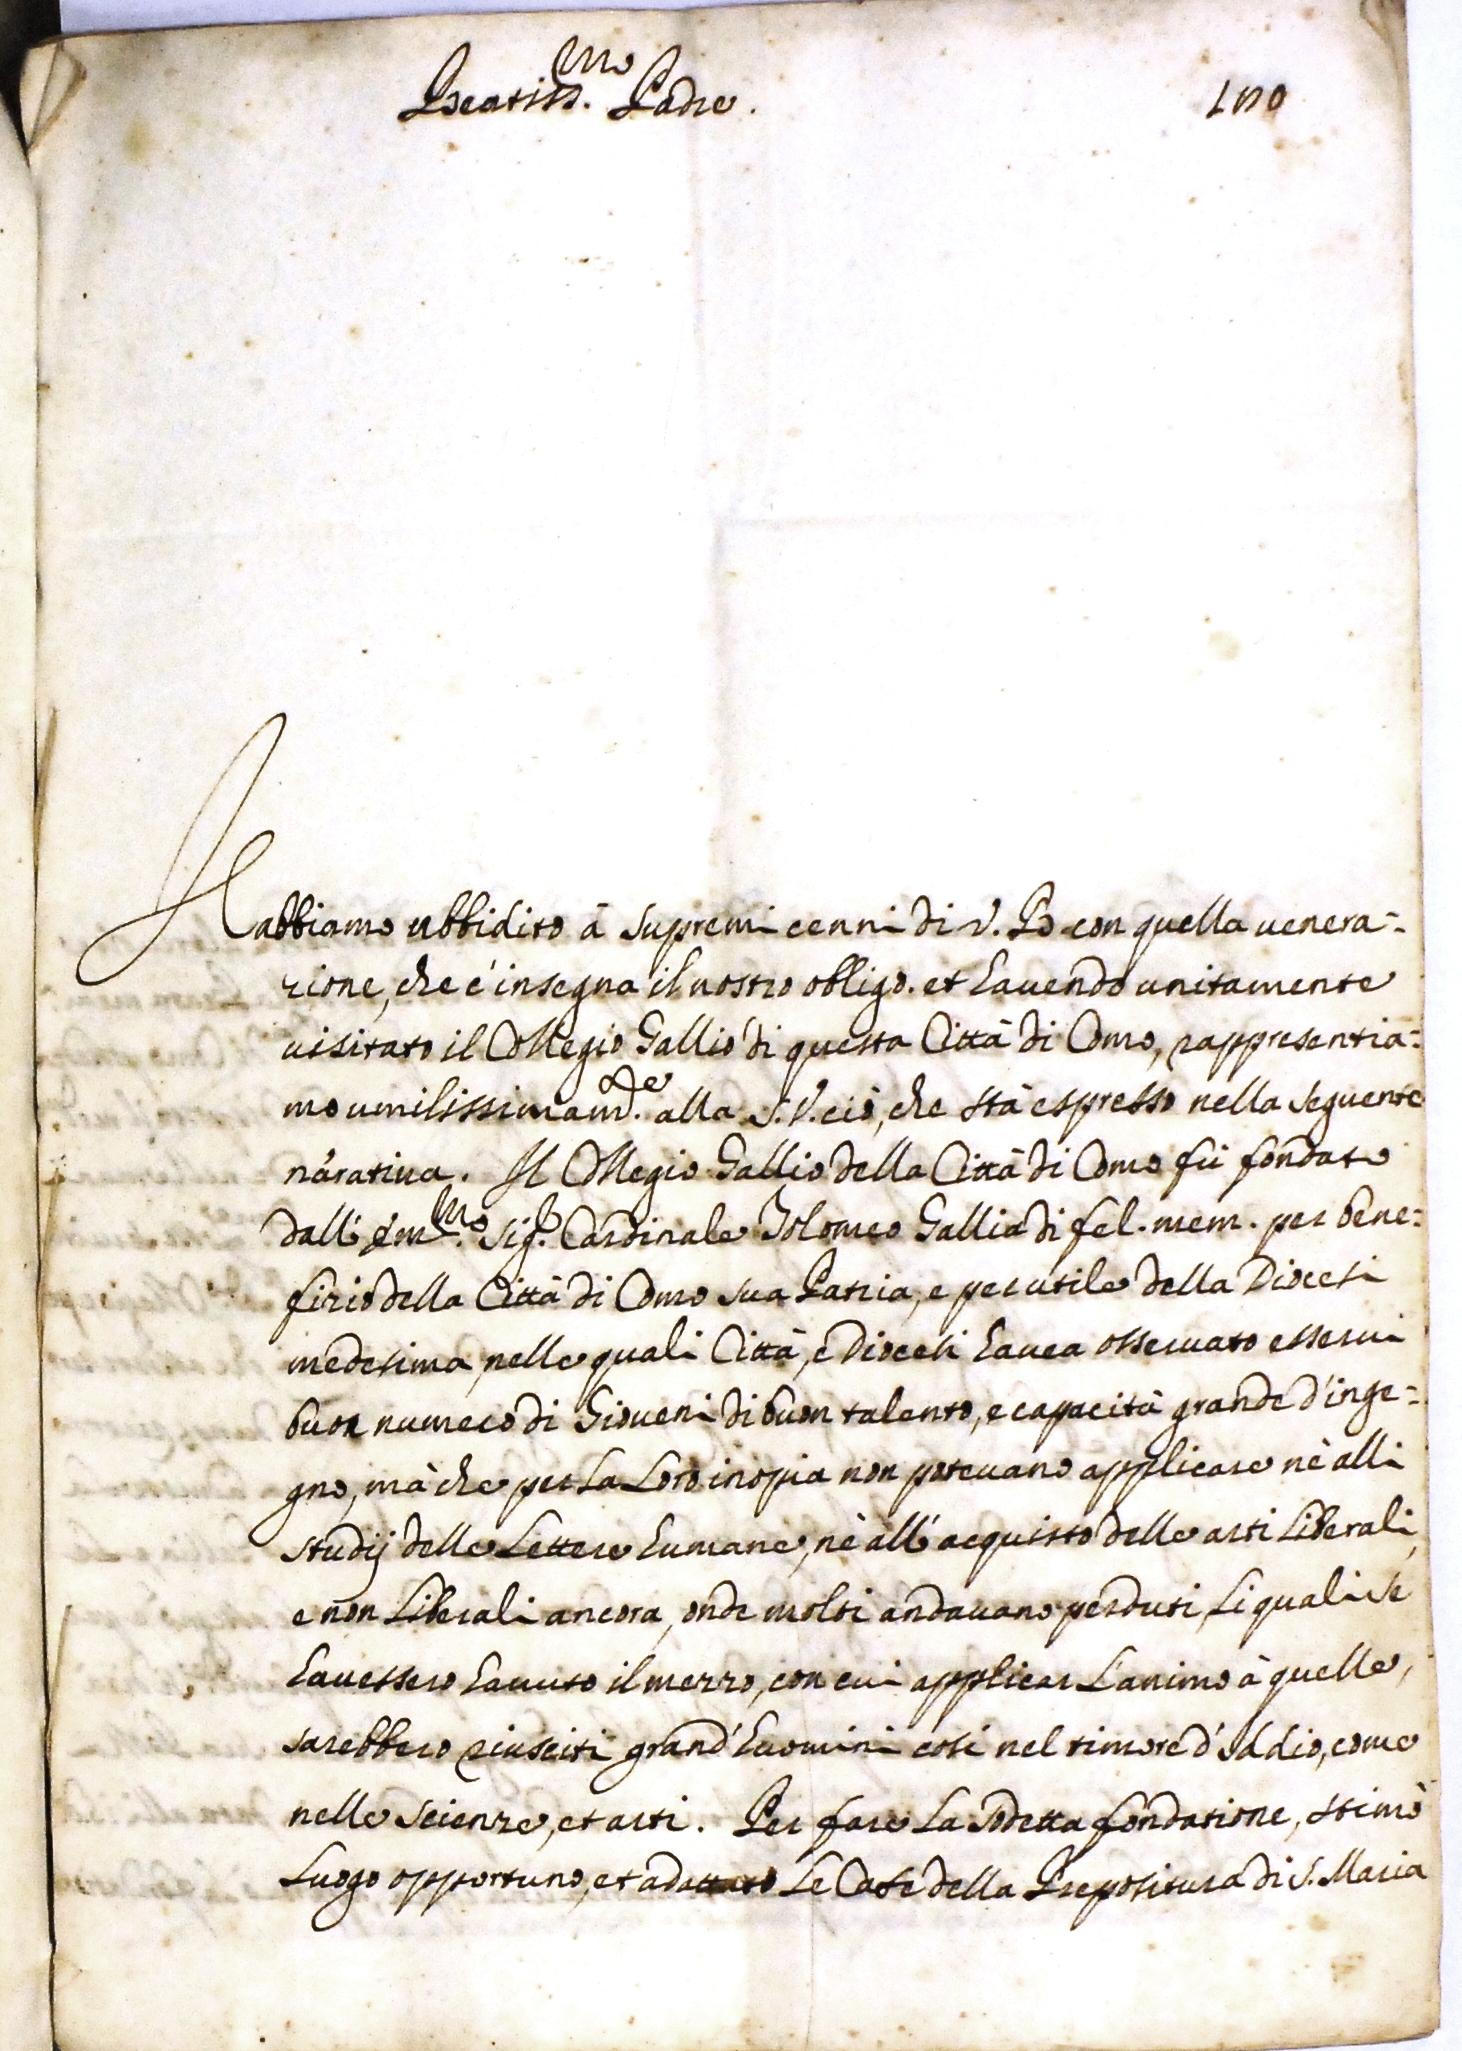 Beatiss.mo Padre.
Habbiamo ubbidito à supremi cenni di V. B. con quella venera=
zione, che c'insegna il nostro obligo. et hauendo unitamente
uisitato il Collegio Gallio di questa Città di Como, rappresentia=
mo umilissimam.te alla S. V. ciò, che stà espresso nella seguente
naratiua. Il Collegio Gallio della Città di Como fù fondato
dall' Em.mo Sig.r Cardinale Tolomeo Gallia di fel. mem. per bene=
fizio della Città di Como sua Patria, e per utile della Diocesi
medesima, nelle quali Città, e Diocesi hauea osseruato esserui
buon numero di Gioueni di buon talento, e capacità grande d'inge=
gno, mà che per la loro inopia non poteuano applicare nè alli
studij delle Lettere humane, nè all' acquisto delle arti Liberali,
e non Liberali ancora, onde molti andauano perduti, li quali se
hauessero hauuto il mezzo, con cui applicar l'animo à quelle,
sarebbero riusciti grand' huomini così nel timore d' Iddio, come
nelle scienze, et arti. Per fare la sodetta fondatione, stimò
luogo opportuno, et adattato le Case della Prepositura di S. Maria